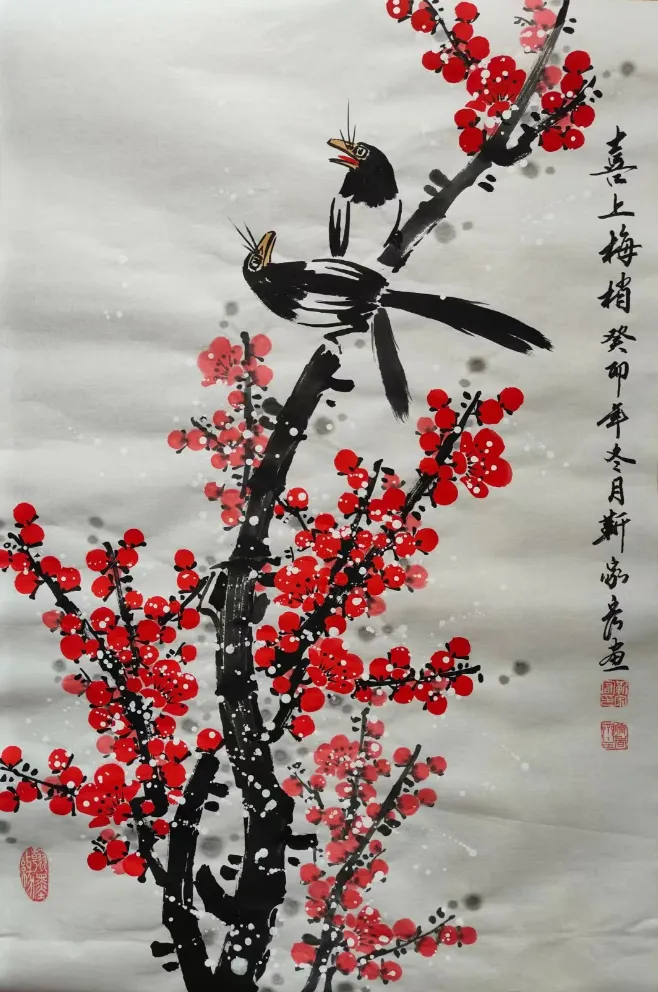 喜上梅梢癸卯年冬月靳家彦画